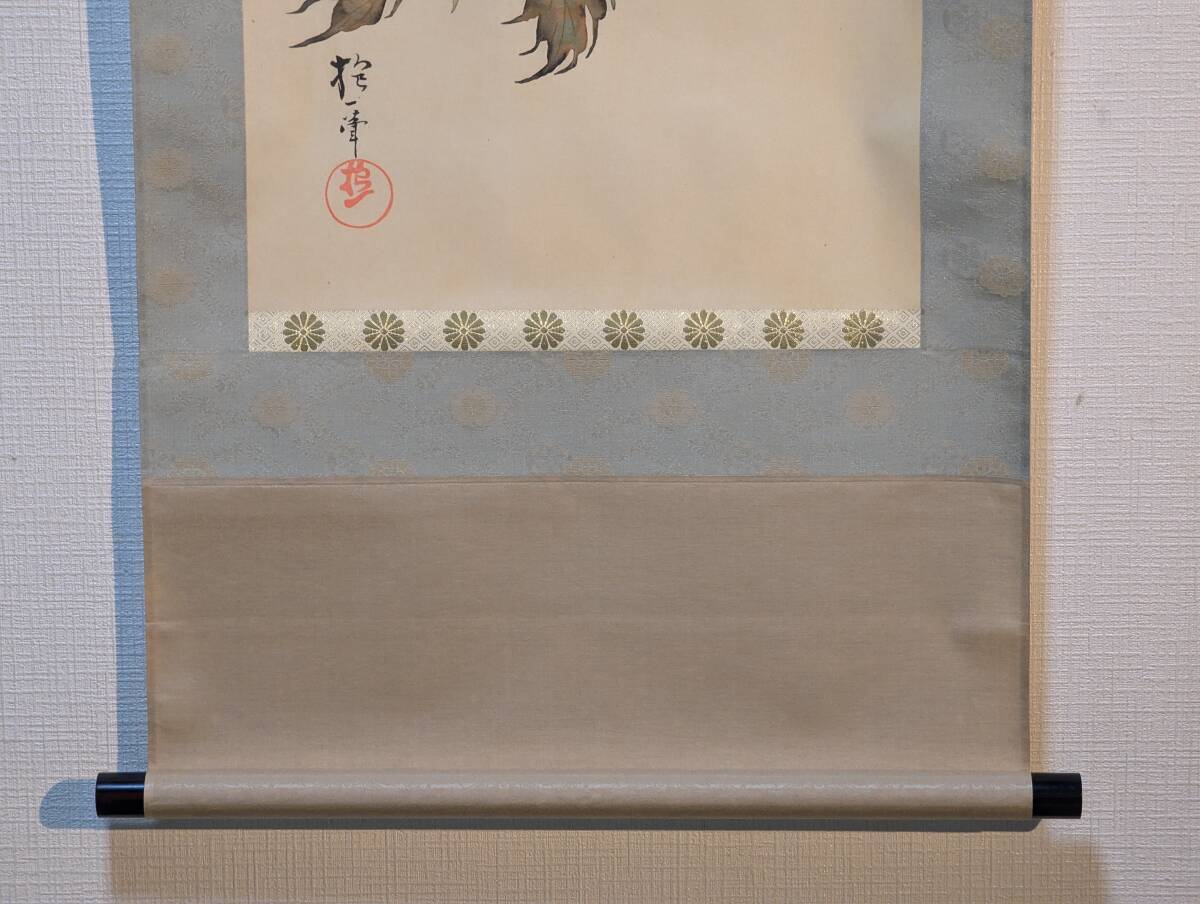 抱一筆
抱一